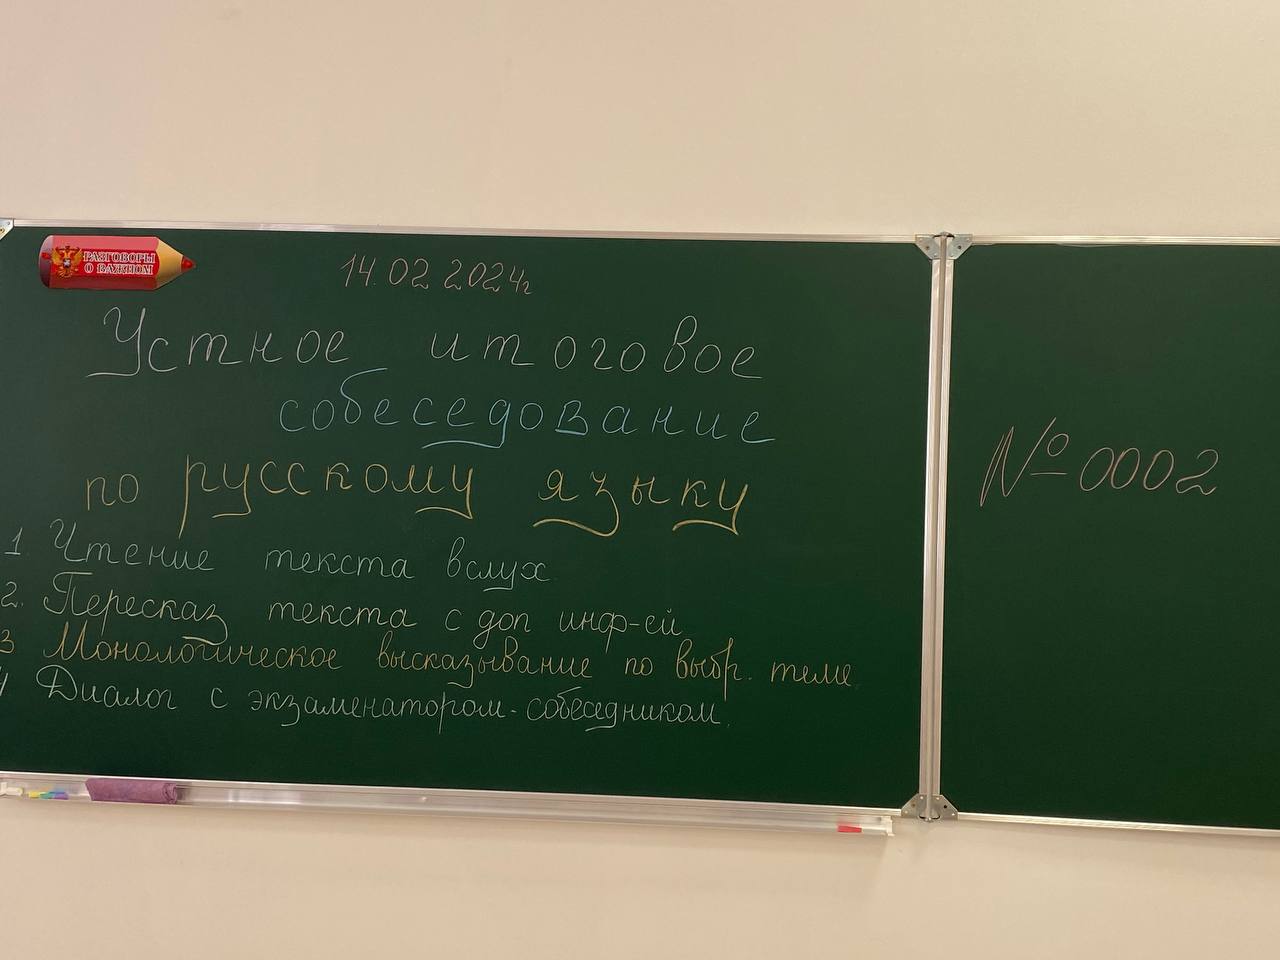 РАЗГОВОРЫ
О ВАЖНОМ
14.02 2024г
Устное итоговое
собеседование
по русскому языку
1 Чтение текста вслух.
2. Пересказ текста с доп инф-ей.
3 Монологическое высказывание по выбр. теме.
4 Диалог с экзаменатором-собеседником.
№ 0002